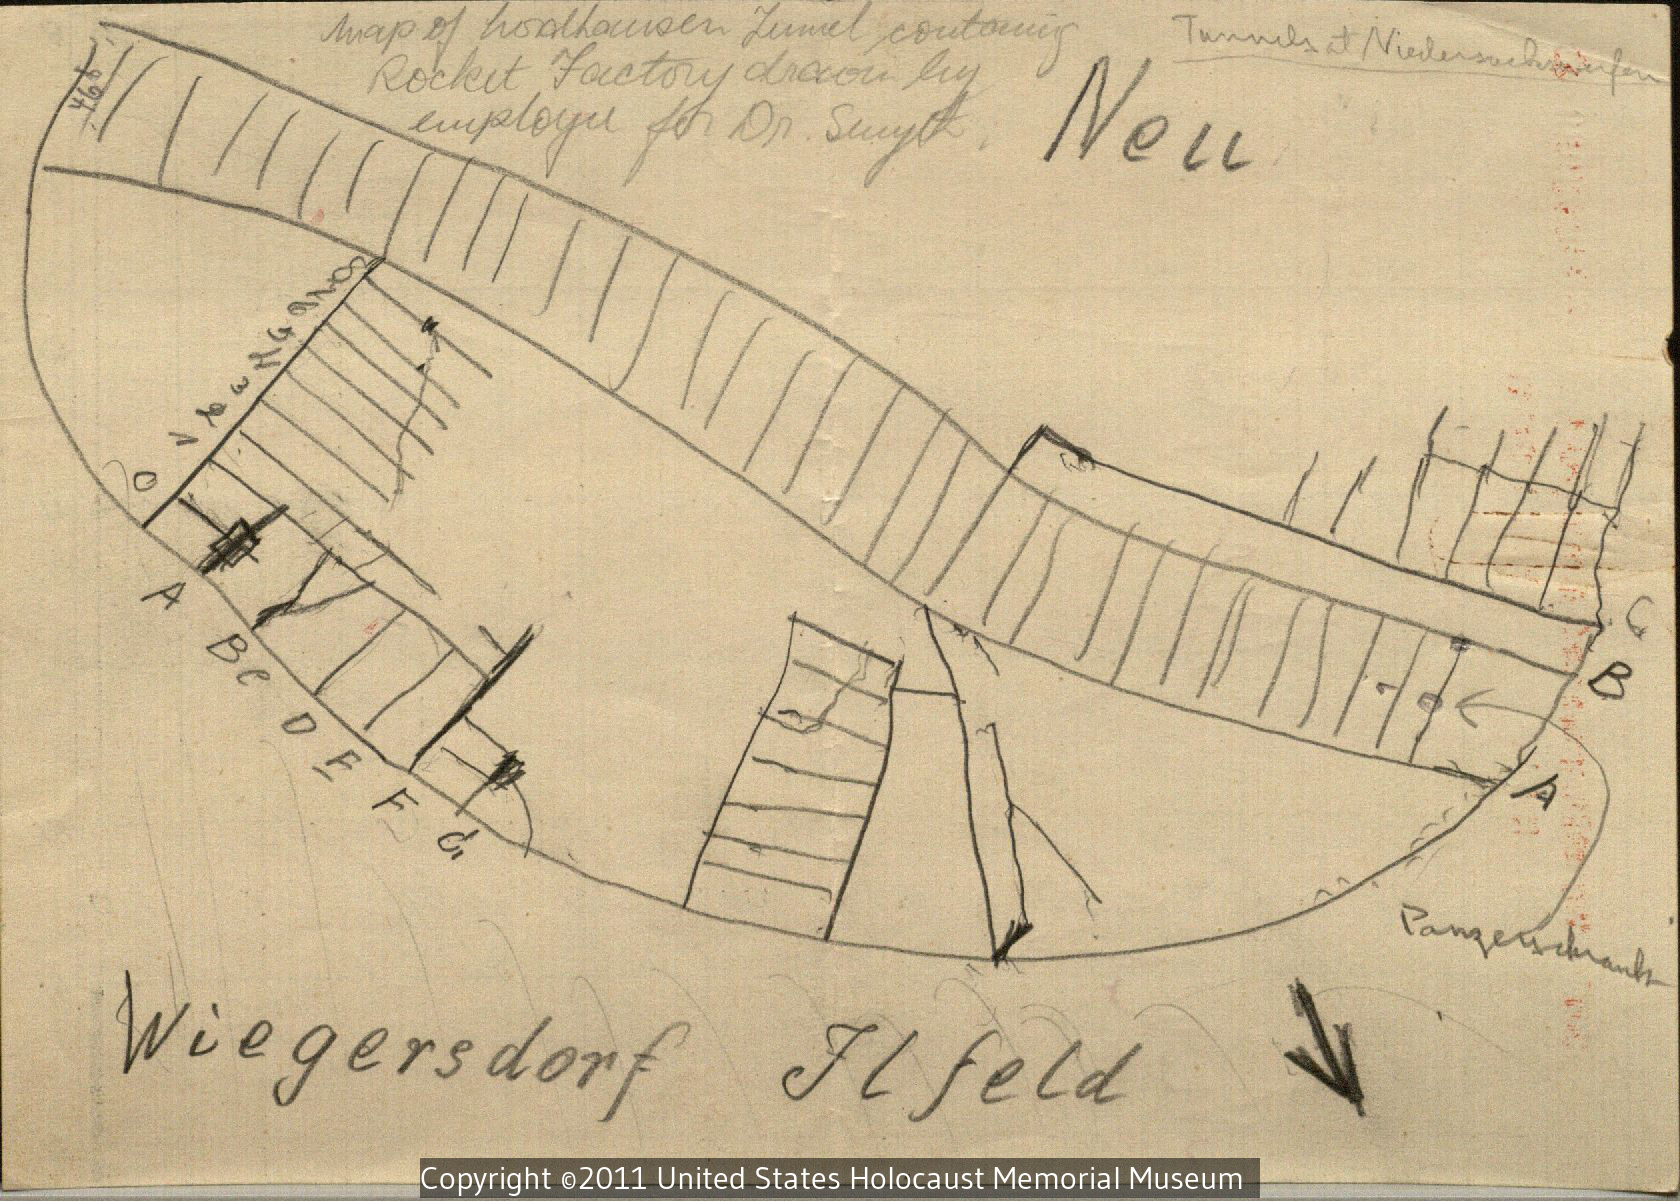 Map of Nordhausen Tunnel containing
Rocket Factory drawn by
employee for Dr. Smyth.
Tunnels at Niedersachswerfen
Neu
46
0 1 2 3 4
A B C D E F G
C
B
A
Panzerschrank
Wiegersdorf Ilfeld
Copyright ©2011 United States Holocaust Memorial Museum